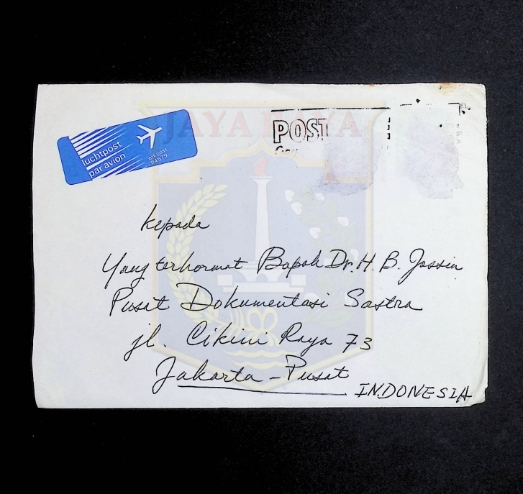 JAYA RAYA
POST
luchtpost
par avion
kepada
Yang terhormat Bapak Dr. H. B. Jassin
Pusat Dokumentasi Sastra
jl. Cikini Raya 73
Jakarta - Pusat
INDONESIA